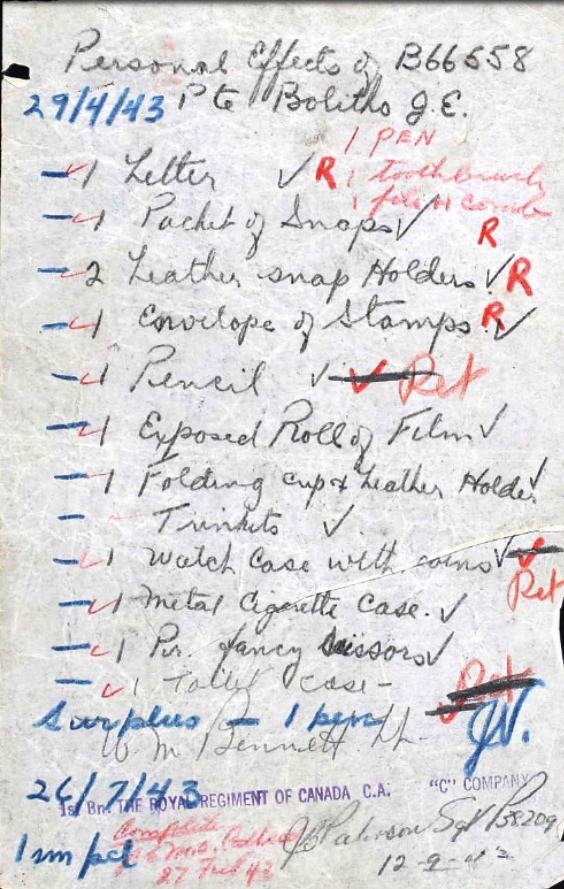 Personal Effects of B66558
29/4/43 Pte Bolitho J.E.
1 PEN
1 Letter ✓ R 1 toothbrush
1 file & comb
1 Packet of Snaps ✓ R
2 Leather snap Holders ✓ R
1 Envelope of Stamps R ✓
1 Pencil ✓ ✓ Ret
1 Exposed Roll of Film ✓
1 Folding cup & Leather Holder ✓
Trinkets ✓
1 Watch Case with coins ✓ ✓
Ret
1 Metal Cigarette Case. ✓
1 Pr. fancy Scissors ✓
1 Toilet case - Ret
Surplus - 1 pen
W. M. Bennett. Lt. JV.
26/7/43
1st Bn. THE ROYAL REGIMENT OF CANADA C.A. "C" COMPANY
Complete
Paterson Sgt B58209
1 sm pcl
12-9-42